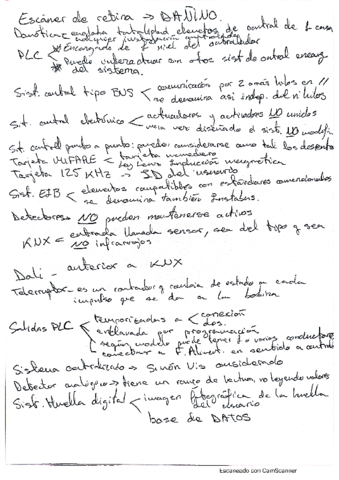 Escáner de retina → DAÑINO.
Domótica = engloba totalidad elementos de control de 1 casa
cualquier instalación
PLC * Encargado de 1er nivel del controlador
* Puede interactuar con otros sist de control encarg
del sistema.
Sist. control tipo BUS comunicación por 2 o más hilos en //
se denomina así indep. del nº hilos
S.t. control electrónico actuadores y activadores NO unidos
una vez diseñado el sist. NO modif
St control punto a punto: puede considerarse como tal los
Tarjeta MIFARE tarjeta monedero
inducción magnética
Tarjeta 125 KHz → ID del usuario
Sist. EIB elementos compatibles con estándares
se denomina también Instabus.
Detectores NO pueden mantenerse activos
KNX = entrada llamada sensor, sea del tipo q sea
NO infrarrojos
Dali - anterior a KNX
Telerruptor - es un y cambia de estado a cada
impulso que se da a la bobina
Salidas PLC temporizadas a conexión
des.
enclavada por programación
según modelo puede tener 1 o varios conductores
conectar a F. Aliment. en sentido a
Sistema centralizado → Simón Vis
Detector analógico → tiene un rango de lectura, no leyendo valores
Sist. Huella digital imagen fotográfica de la huella
del usuario
base de DATOS
Escaneado con CamScanner